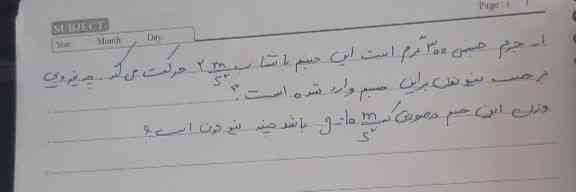 Page: ( )
SUBJECT:
Year: Month: Day:
اگر جرم جسمی ۳۰۰ گرم است این جسم با شتاب ۲ m/s² حرکت می‌کند چه نیرویی
بر حسب نیوتن براین جسم وارد شده است؟
وزن این جسم درصورتی که m/s² ۱۰=g باشد چند نیوتن است؟